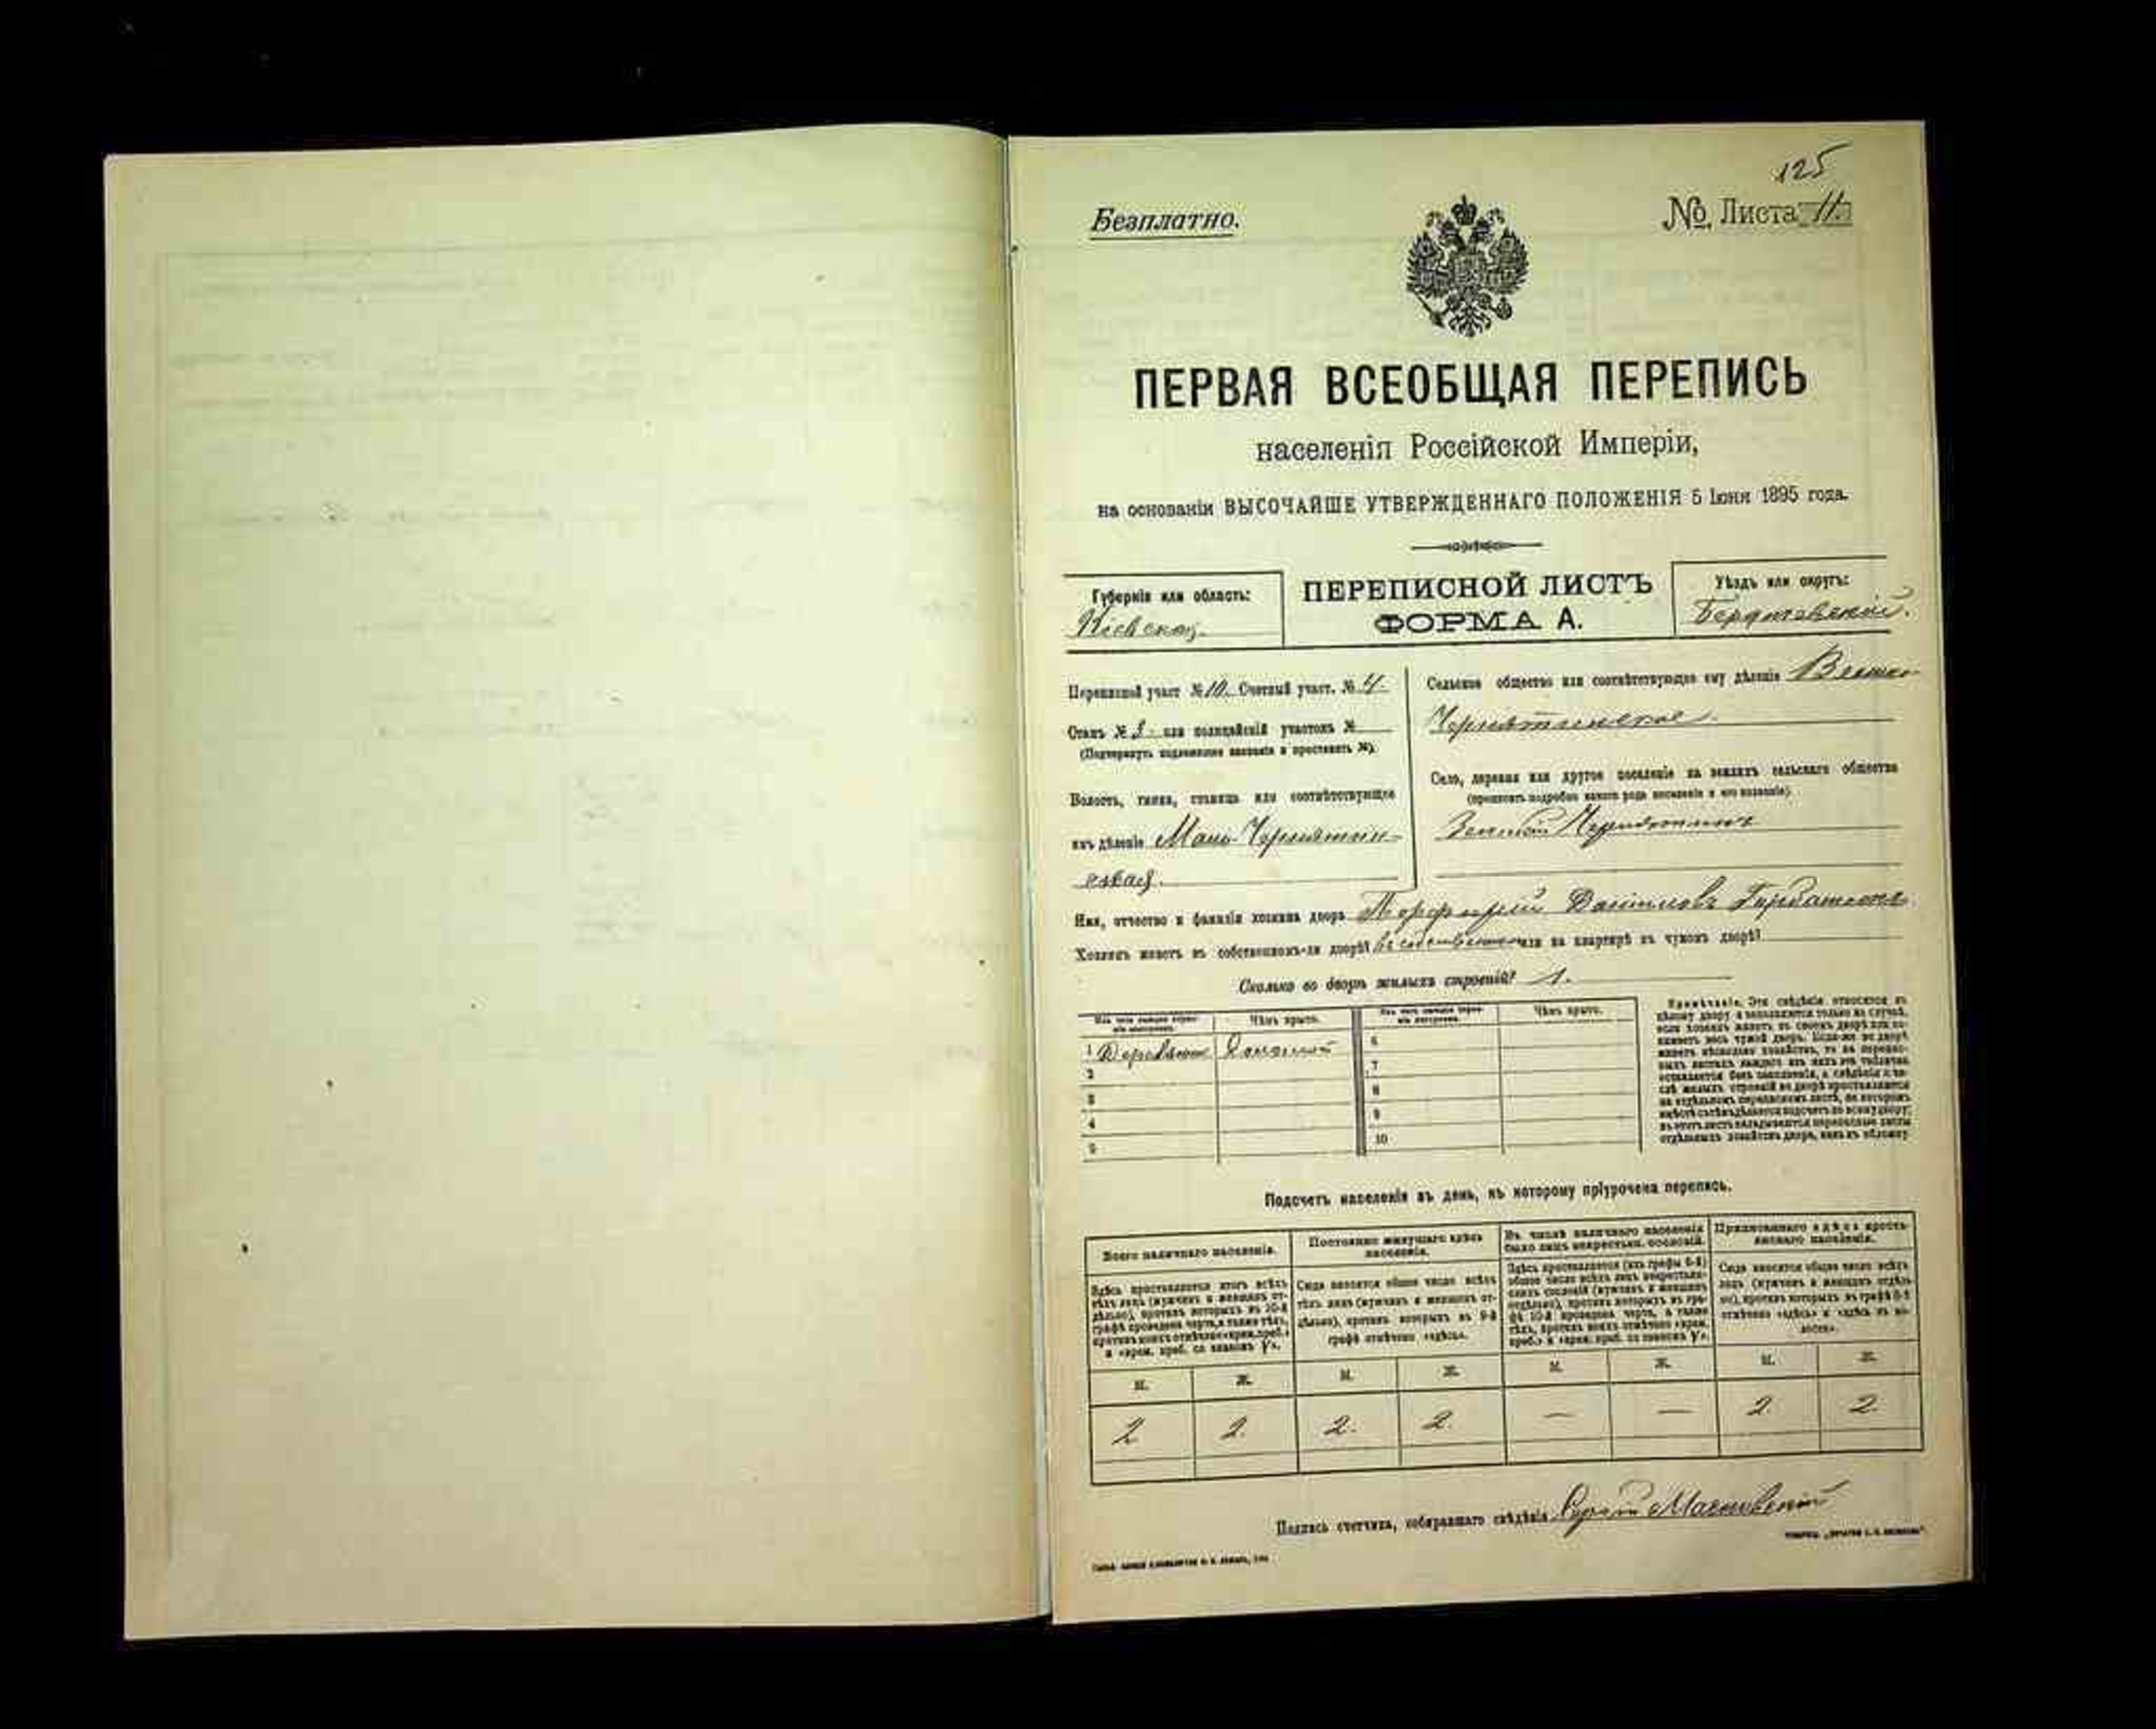 125
Безплатно.
№ Листа 11.
ПЕРВАЯ ВСЕОБЩАЯ ПЕРЕПИСЬ
населенія Россійской Имперіи,
на основаніи ВЫСОЧАЙШЕ УТВЕРЖДЕННАГО ПОЛОЖЕНІЯ 5 Іюня 1895 года.
Губернія или область:
Кіевская.
ПЕРЕПИСНОЙ ЛИСТЪ
ФОРМА А.
Уѣздъ или округъ:
Бердичевскій.
Переписной участ № 10. Счетный участ. № 4.
Станъ № 3 или полицейскій участокъ №
(Подчеркнуть надлежащее названіе и проставить №).
Волость, гмина, станица или соотвѣтствующее
имъ дѣленіе Мало-Чернятин-
ская.
Сельское общество или соотвѣтствующее ему дѣленіе
Чернятинское.
Село, деревня или другое поселеніе на земляхъ сельскаго общества
(прописать подробно какого рода поселеніе и его названіе)
Чернятинъ
Имя, отчество и фамилія хозяина двора Порфирій Даніиловъ
Хозяинъ живетъ въ собственномъ-ли дворѣ? въ собственномъ или на квартирѣ въ чужомъ дворѣ?
Сколько во дворѣ жилыхъ строеній? 1.
Изъ чего жилыя строенія построены. Чѣмъ крыто. Изъ чего жилыя строенія построены. Чѣмъ крыто.
1 6
2 7
3 8
4 9
5 10
Примѣчаніе. Эти свѣдѣнія относятся къ
цѣлому двору и заполняются только въ случаѣ,
если хозяинъ живетъ въ своемъ дворѣ или за-
нимаетъ весь чужой дворъ. Если-же во дворѣ
живетъ нѣсколько хозяйствъ, то на перепис-
ныхъ листахъ каждаго изъ нихъ эта табличка
оставляется безъ заполненія, а свѣдѣнія о чи-
слѣ жилыхъ строеній во дворѣ проставляются
на отдѣльномъ переписномъ листѣ, на которомъ
вмѣстѣ съ тѣмъ дѣлается подсчетъ по всему двору;
въ этотъ листъ вкладываются переписные листы
отдѣльныхъ хозяйствъ двора, какъ въ обложку.
Подсчетъ населенія въ день, къ которому пріурочена перепись.
Всего наличнаго населенія.
Постоянно живущаго здѣсь населенія.
Въ числѣ наличнаго населенія было лицъ некрестьян. сословій.
Приписаннаго здѣсь крестьянскаго населенія.
Здѣсь проставляется итогъ всѣхъ
тѣхъ лицъ (мужчинъ и женщинъ от-
дѣльно), противъ которыхъ въ 10-й
графѣ проведена черта, а также тѣхъ,
противъ коихъ отмѣчено «врем. преб.»
Сюда вносится общее число всѣхъ
тѣхъ лицъ (мужчинъ и женщинъ от-
дѣльно), противъ которыхъ въ 9-й
графѣ отмѣчено «здѣсь».
Сюда вносится общее число всѣхъ
лицъ (мужчинъ и женщинъ отдѣль-
но), противъ которыхъ въ графѣ 8-й
отмѣчено «здѣсь» и «здѣсь въ во-
лости».
М. Ж. М. Ж. М. Ж. М. Ж.
2 2. 2. 2. — — 2. 2.
Подпись счетчика, собиравшаго свѣдѣнія